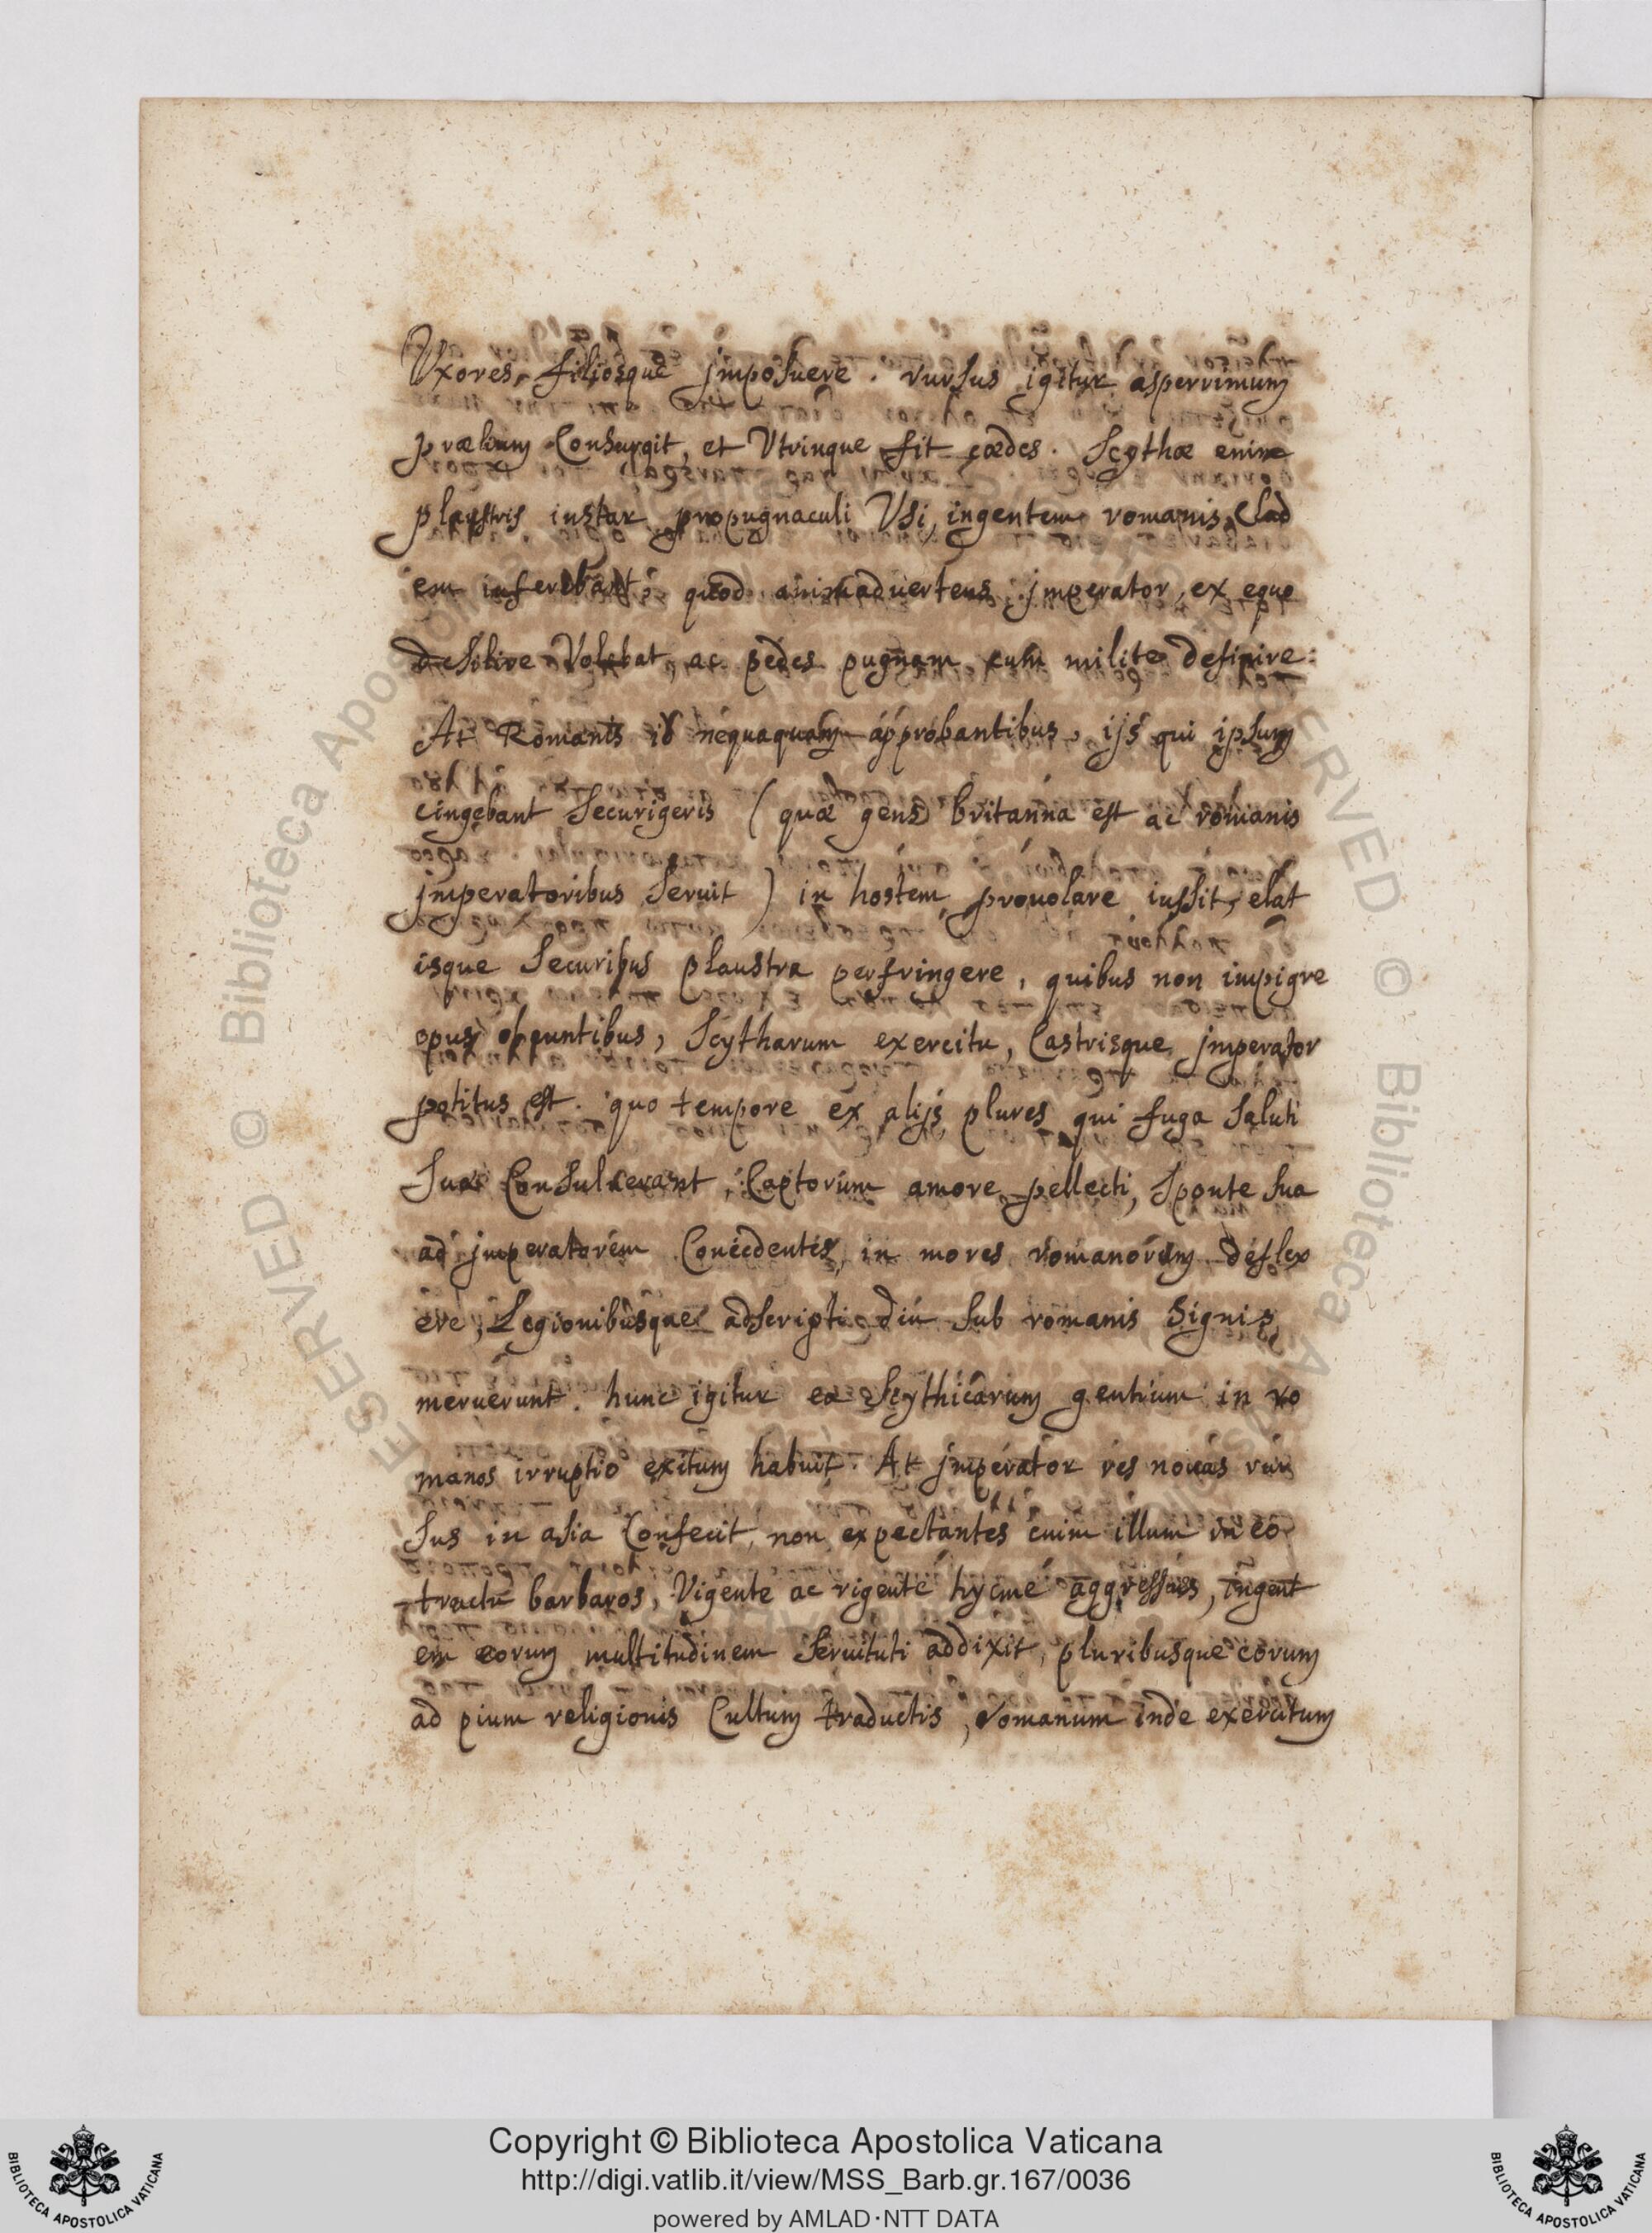 Uxores, filiosque jmposuere. rursus igitur asperrimum
prælium Consurgit, et Utrinque fit cædes. Scythæ enim
plaustris instar propugnaculi Usi, ingentem romanis Clad
em inferebant; quod animaduertens jmperator, ex equo
desilire Volebat, ac pedes pugnam cum milite definire:
At Romanis id nequaquam approbantibus, ijs qui ipsum
cingebant Securigeris (quæ gens britanna est ac romanis
jmperatoribus Seruit) in hostem prouolare iussit, elat
isque Securibus plaustra perfringere, quibus non impigre
opus obeuntibus, Scytharum exercitu, Castrisque jmperator
potitus est. quo tempore ex alijs plures qui fuga Saluti
Suæ Consuluerant, Captorum amore pellecti, Sponte Sua
ad jmperatorem Concedentes, in mores romanorum deflex
ere, Legionibusque adscripti diu Sub romanis Signis
meruerunt. hunc igitur ea Scythicarum gentium in ro
manos irruptio exitum habuit. At jmperator res nouas rur
Sus in asia Confecit, non expectantes enim illum in eo
tractu barbaros, Vigente ac rigente hyeme aggressus, ingent
em eorum multitudinem Seruituti addixit, pluribusque eorum
ad pium religionis Cultum traductis, romanum inde exercitum
Copyright © Biblioteca Apostolica Vaticana
http://digi.vatlib.it/view/MSS_Barb.gr.167/0036
powered by AMLAD·NTT DATA